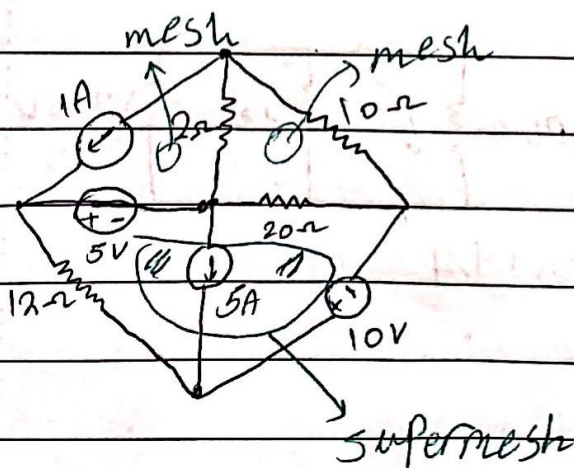 mesh
mesh
1A
2Ω
10Ω
+ -
5V
20Ω
12Ω
5A
+ -
10V
supermesh